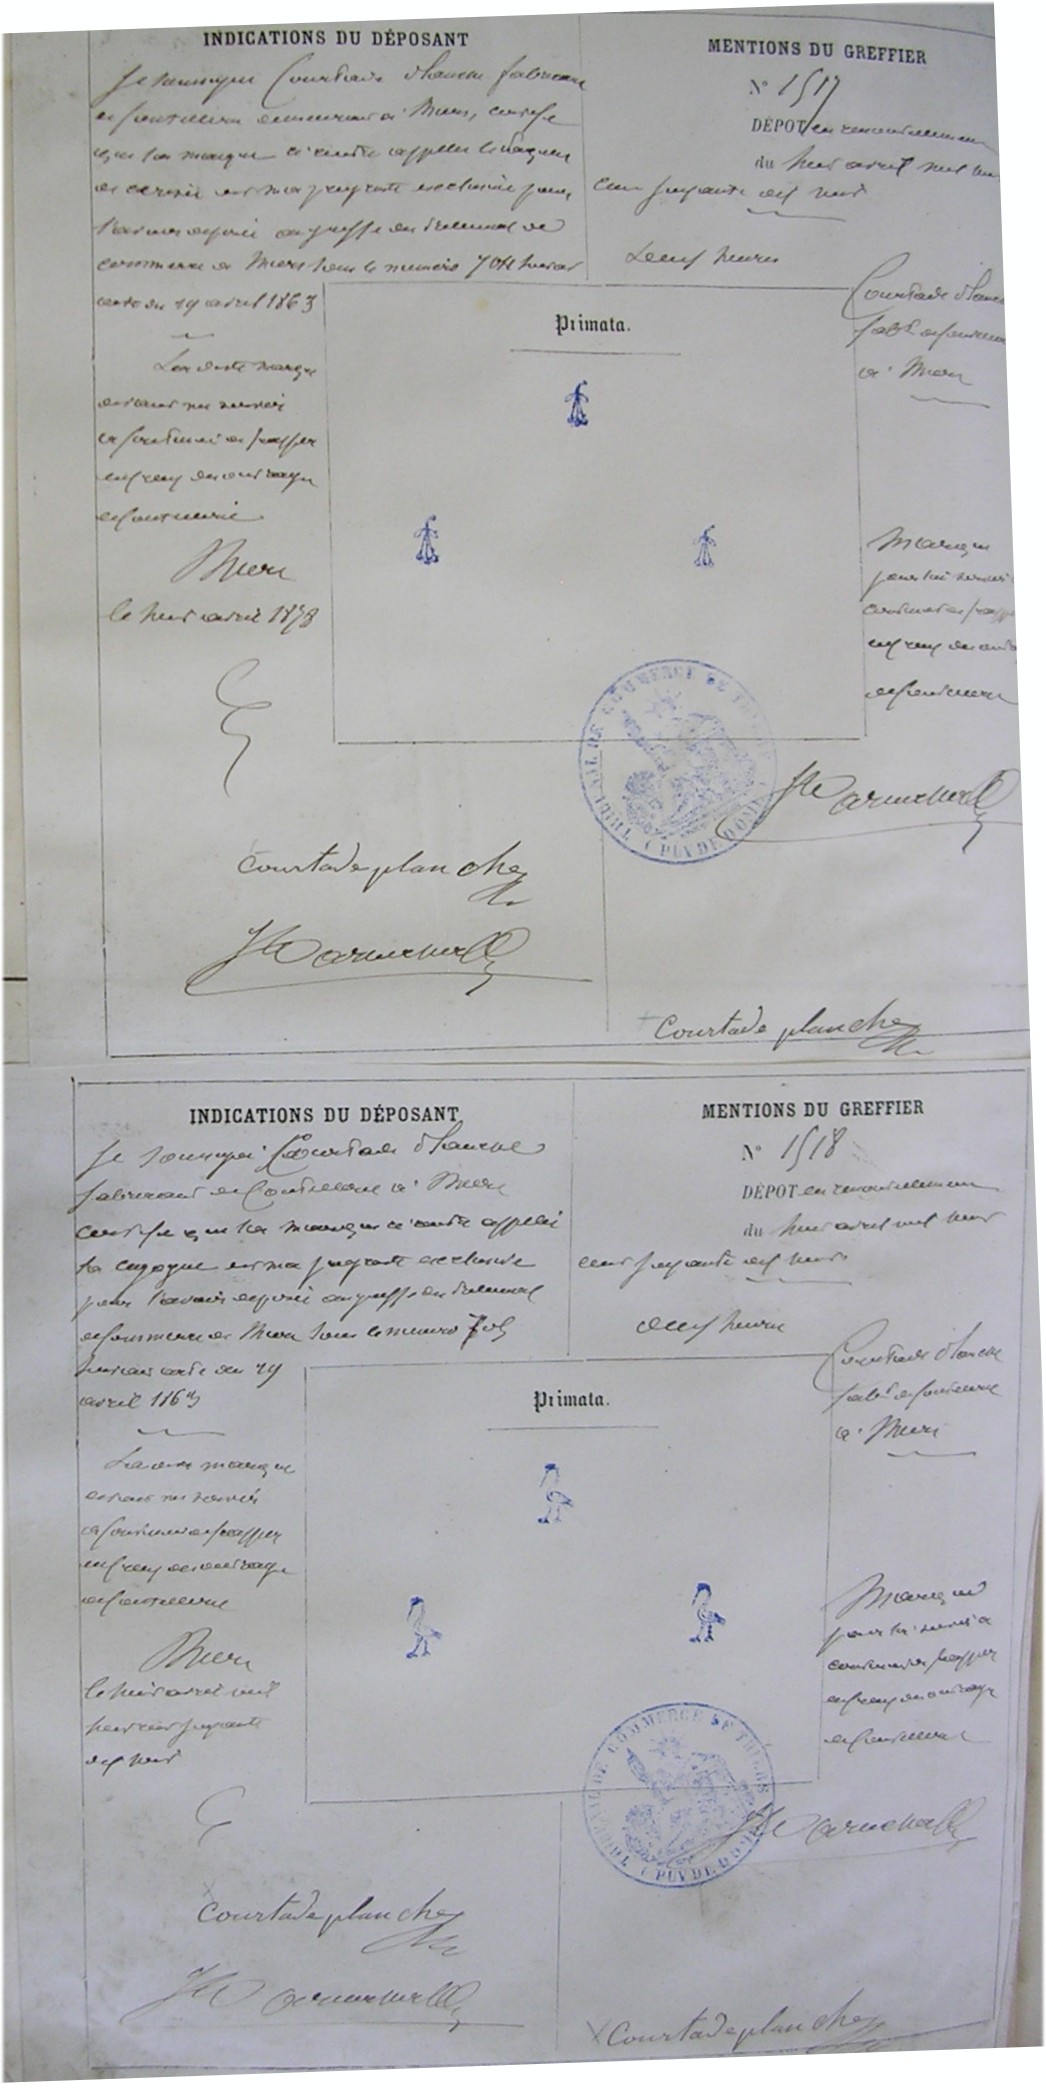 INDICATIONS DU DÉPOSANT
Je soussigné Courtade Planche fabricant
de coutellerie demeurant à Thiers, certifie
que la marque ci contre appelée
est ma propriété exclusive pour
l'avoir déposée au greffe du tribunal de
commerce de Thiers sous le numéro suivant
acte du 29 avril 1863
La dite marque
étant destinée
en creux des ouvrages
de coutellerie
Thiers
le huit avril 1878
courtade planche
MENTIONS DU GREFFIER
N° 1517
DÉPOT en renouvellement
du huit avril mil huit
cent soixante dix huit
deux heures
Courtade Planche
fabt de coutellerie
à Thiers
Primata.
Marque
pour lui servir
en creux des
de coutellerie
TRIBUNAL DE COMMERCE DE THIERS
(PUY DE DOME)
courtade planche
INDICATIONS DU DÉPOSANT
Je soussigné Courtade Planche
fabricant de Coutellerie à Thiers
certifie que la marque ci contre appelée
la cigogne est ma propriété exclusive
pour l'avoir déposée au greffe du tribunal
de Commerce de Thiers sous le numéro
suivant acte du 29
avril 1863
La dite marque
étant destinée
en creux des ouvrages
de coutellerie
Thiers
le huit avril mil
huit cent soixante
dix huit
courtade planche
MENTIONS DU GREFFIER
N° 1518
DÉPOT en renouvellement
du huit avril mil huit
cent soixante dix huit
deux heures
Courtade Planche
fabt de coutellerie
à Thiers
Primata.
Marque
pour lui servir à
en creux des ouvrages
de coutellerie
TRIBUNAL DE COMMERCE DE THIERS
(PUY DE DOME)
courtade planche